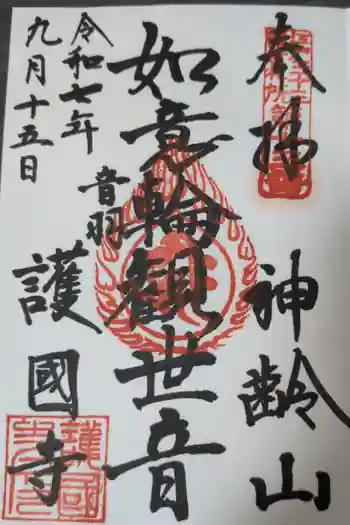 奉拝
神齢山
如意輪観世音
令和七年
九月十五日
音羽
護國寺